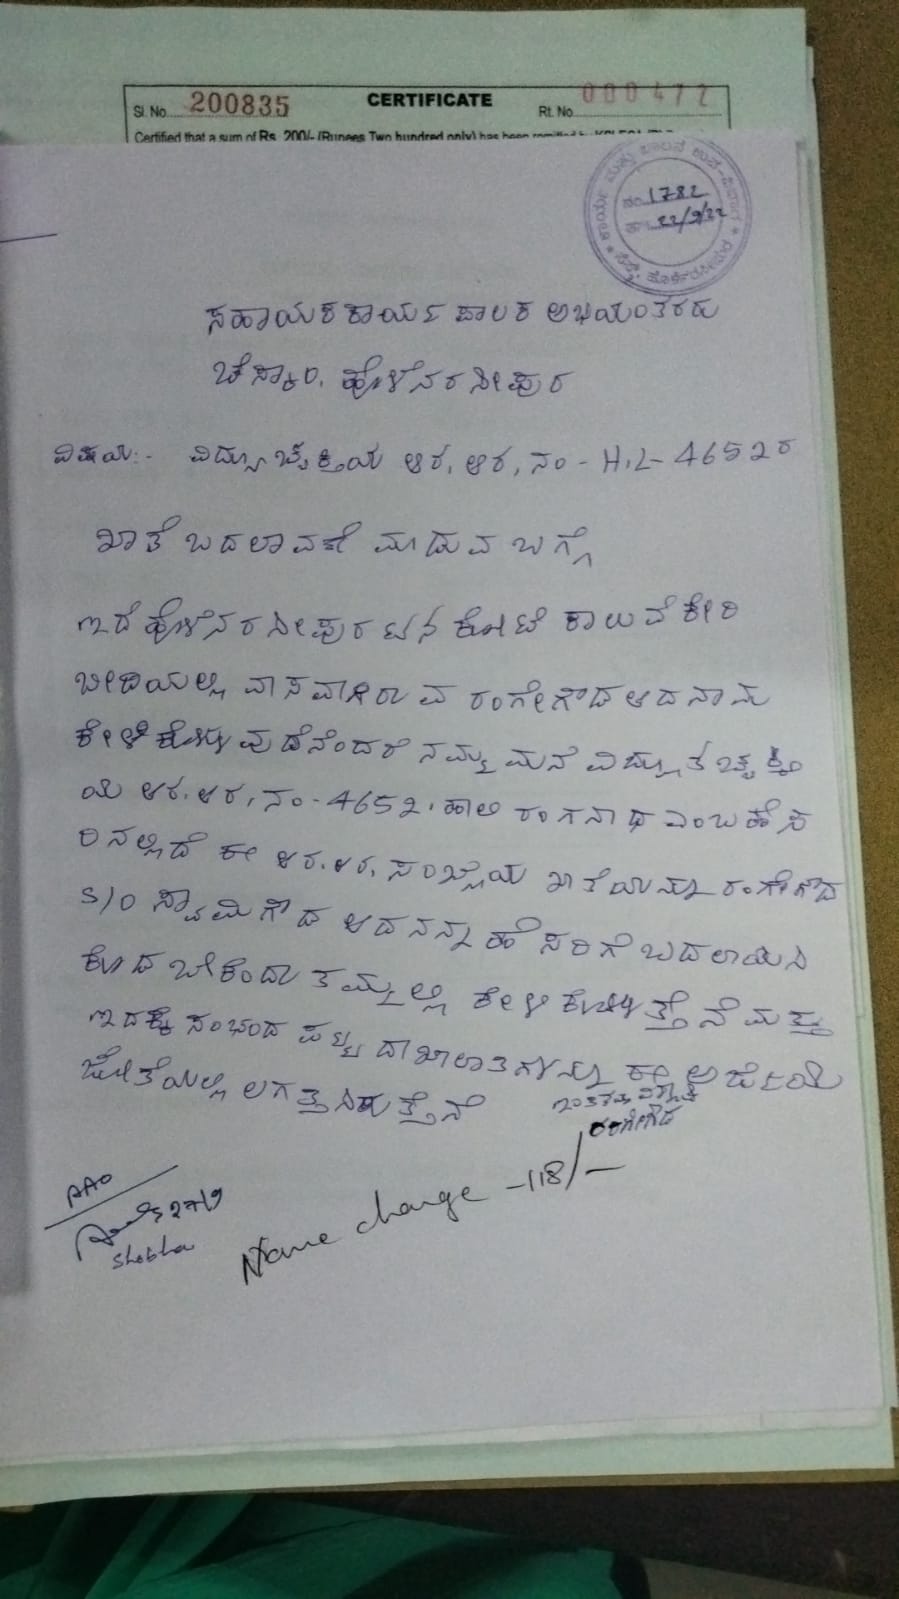 Sl. No. 200835 CERTIFICATE Rt. No. 000472
Certified that a sum of Rs. 200/- (Rupees Two hundred only) has been remitted
ಕಾರ್ಯ ಮತ್ತು ಪಾಲನೆ ಉಪ-ವಿಭಾಗ
ನಂ. 1782
ತಾ. 22/9/22
ಹೊಳೆನರಸೀಪುರ
ಸಹಾಯಕ ಕಾರ್ಯ ಪಾಲಕ ಅಭಿಯಂತರರು
ಚೆಸ್ಕಾಂ, ಹೊಳೆನರಸೀಪುರ
ವಿಷಯ:- ವಿದ್ಯುಚ್ಛಕ್ತಿಯ ಆರ, ಆರ, ನಂ - H.L - 4652ರ
ಖಾತೆ ಬದಲಾವಣೆ ಮಾಡುವ ಬಗ್ಗೆ
ಇದೆ ಹೊಳೆನರಸೀಪುರ ಟನ ಕೋಟೆ ಕಾಲುವೆ ಕೇರಿ
ಬೀದಿಯಲ್ಲಿ ವಾಸವಾಗಿರುವ ರಂಗೇಗೌಡ ಆದ ನಾನು
ಕೇಳಿಕೊಳ್ಳುವುದೆನೆಂದರೆ ನಮ್ಮ ಮನೆ ವಿದ್ಯುತ
ಯ ಆರ. ಆರ, ನಂ - 4652, ಹಾಲಿ ರಂಗನಾಥ ಎಂಬ ಹೆಸ
ರಿನಲ್ಲಿದೆ ಈ ಆರ. ಆರ. ಸಂಖ್ಯೆಯ ಖಾತೆಯನ್ನು ರಂಗೇಗೌಡ
S/O ಸ್ವಾಮಿಗೌಡ ಆದ ನನ್ನ ಹೆಸರಿಗೆ ಬದಲಾಯಿಸಿ
ಕೊಡಬೇಕೆಂದು ತಮ್ಮಲ್ಲಿ ಕೇಳಿಕೊಳ್ಳುತ್ತೆನೆ ಮತ್ತು
ಇದಕ್ಕೆ ಸಂಭಂದ ಪಟ್ಟ ದಾಖಲಾತಿಗಳನ್ನು ಈ ಅರ್ಜಿಯ
ಜೋತೆಯಲ್ಲಿ ಲಗತ್ತಿಸಿರುತ್ತೆನೆ
ಇಂತಿ ತಮ್ಮ ವಿಶ್ವಾಸಿ
ರಂಗೇಗೌಡ
AAO
27/9
Shobha
Name change - 118/-